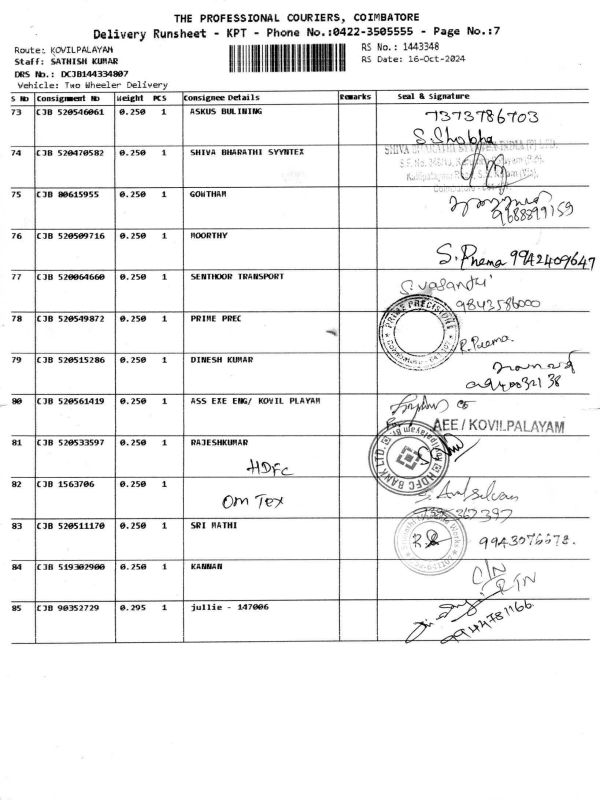 THE PROFESSIONAL COURIERS, COIMBATORE
Delivery Runsheet - KPT - Phone No.:0422-3505555 - Page No.:7
Route: KOVILPALAYAM
RS No.: 1443348
Staff: SATHISH KUMAR
RS Date: 16-Oct-2024
DRS No.: DCJB144334807
Vehicle: Two Wheeler Delivery
S No Consignment No Weight PCS Consignee Details Remarks Seal & Signature
73 CJB 520546061 0.250 1 ASKUS BULINING 7373786703
S. Shobha
74 CJB 520470582 0.250 1 SHIVA BHARATHI SYYNTEX
75 CJB 80615955 0.250 1 GOWTHAM 9688899159
76 CJB 520509716 0.250 1 MOORTHY S. Prema 9942409647
77 CJB 520064660 0.250 1 SENTHOOR TRANSPORT S. Vasanthi
9842586000
78 CJB 520549872 0.250 1 PRIME PREC PRIME PRECISIONS
79 CJB 520515286 0.250 1 DINESH KUMAR
80 CJB 520561419 0.250 1 ASS EXE ENG/ KOVIL PLAYAM
AEE / KOVILPALAYAM
81 CJB 520533597 0.250 1 RAJESHKUMAR
HDFC HDFC BANK LTD.
82 CJB 1563706 0.250 1
Om Tex
83 CJB 520511170 0.250 1 SRI MATHI
84 CJB 519302900 0.250 1 KANNAN C/N
RTN
85 CJB 90352729 0.295 1 jullie - 147006
9944781166